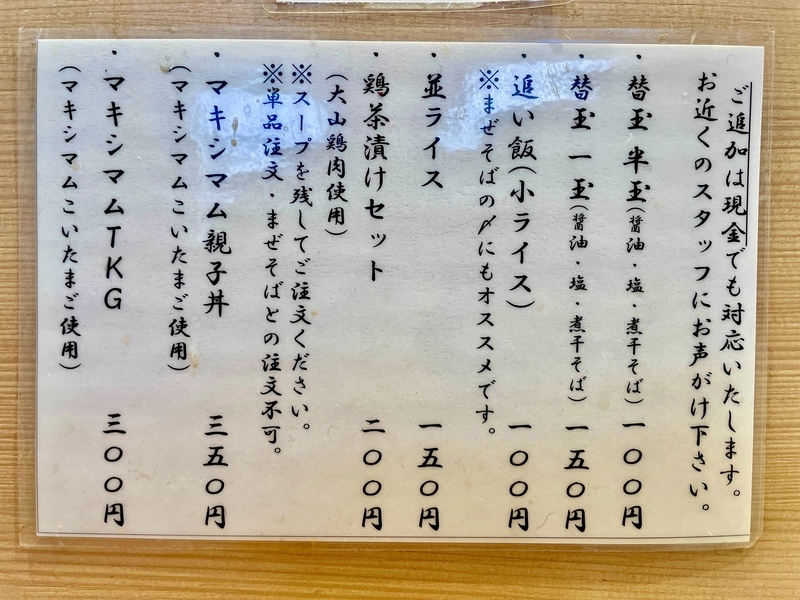 ご追加は現金でも対応いたします。
お近くのスタッフにお声がけ下さい。
・替玉 半玉(醤油・塩・煮干そば) 一〇〇円
・替玉 一玉(醤油・塩・煮干そば) 一五〇円
・追い飯(小ライス) 一〇〇円
※まぜそばの〆にもオススメです。
・並ライス 一五〇円
・鶏茶漬けセット 二〇〇円
(大山鶏肉使用)
※スープを残してご注文ください。
※単品注文・まぜそばとの注文不可。
・マキシマム親子丼 三五〇円
(マキシマムこいたまご使用)
・マキシマムTKG 三〇〇円
(マキシマムこいたまご使用)